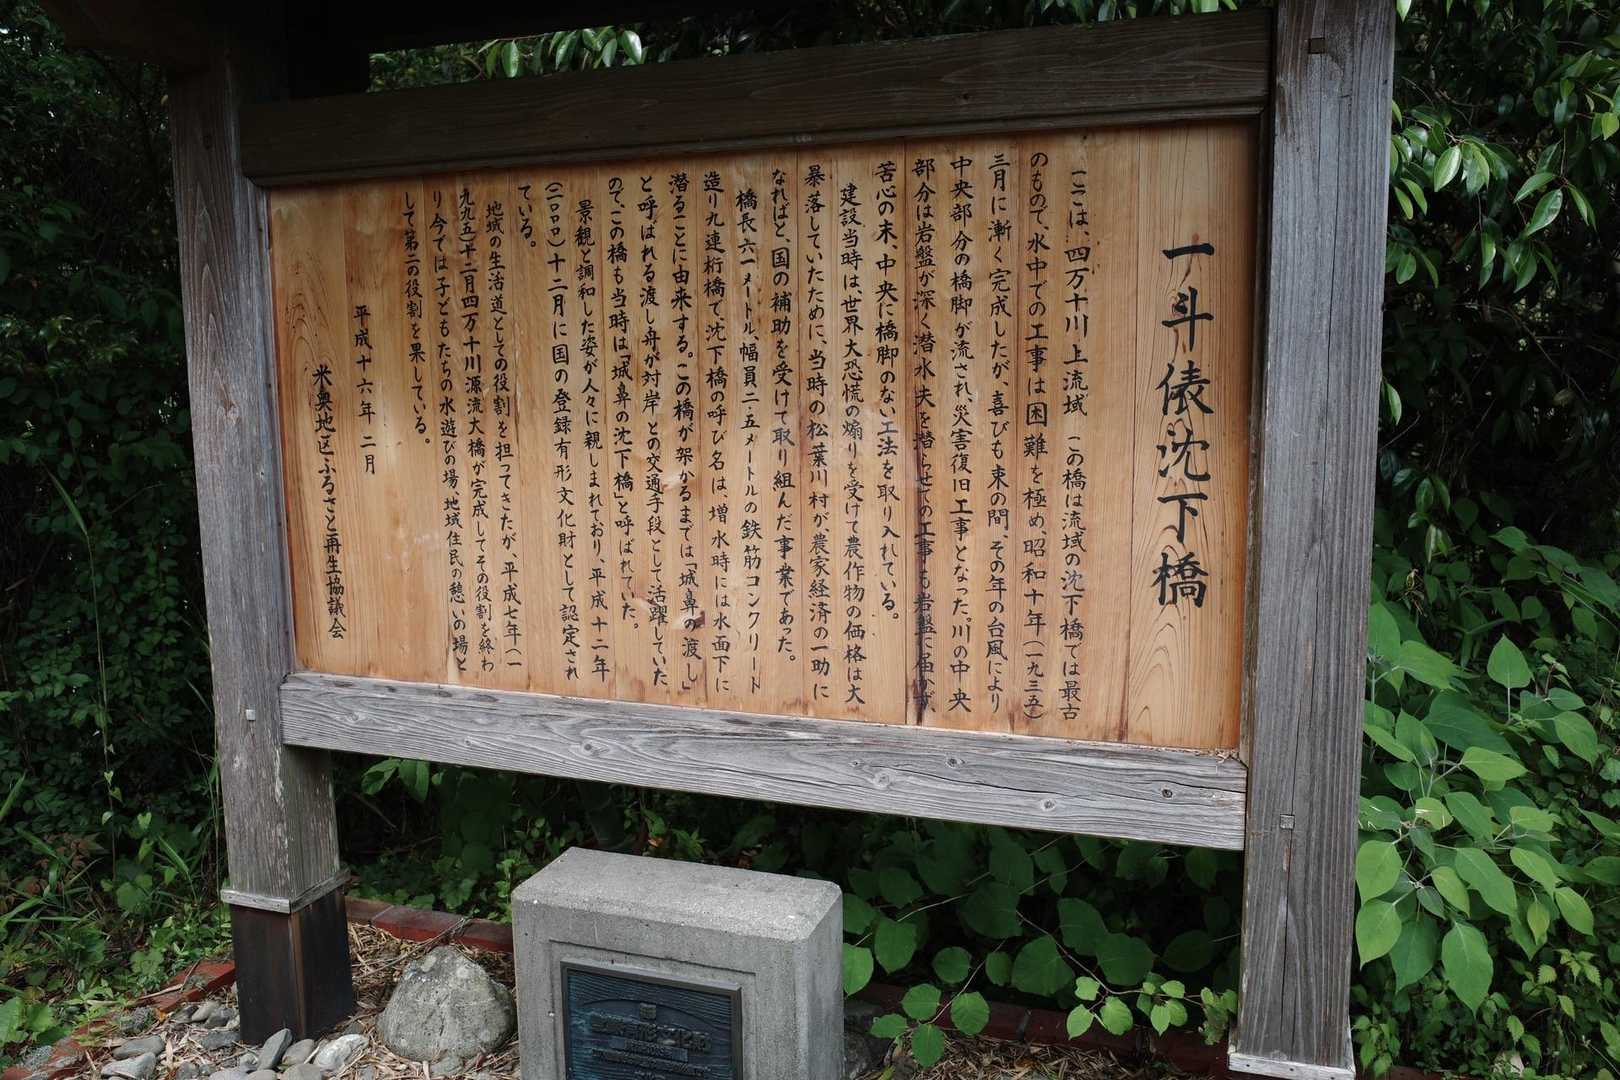 一斗俵沈下橋
ここは、四万十川上流域 この橋は流域の沈下橋では最古
のもので、水中での工事は困難を極め、昭和十年(一九三五)
三月に漸く完成したが、喜びも束の間、その年の台風により
中央部分の橋脚が流され、災害復旧工事となった。川の中央
部分は岩盤が深く潜水夫を潜らせての工事も岩盤に届かず、
苦心の末、中央に橋脚のない工法を取り入れている。
建設当時は、世界大恐慌の煽りを受けて農作物の価格は大
暴落していたために、当時の松葉川村が、農家経済の一助に
なればと、国の補助を受けて取り組んだ事業であった。
橋長六一メートル、幅員二・五メートルの鉄筋コンクリート
造り九連桁橋で、沈下橋の呼び名は、増水時には水面下に
潜ることに由来する。この橋が架かるまでは「城鼻の渡し」
と呼ばれる渡し舟が対岸との交通手段として活躍していた
ので、この橋も当時は「城鼻の沈下橋」と呼ばれていた。
景観と調和した姿が人々に親しまれており、平成十二年
(二〇〇〇)十二月に国の登録有形文化財として認定され
ている。
地域の生活道としての役割を担ってきたが、平成七年(一
九九五)十二月四万十川源流大橋が完成してその役割を終わ
り今では子どもたちの水遊びの場、地域住民の憩いの場と
して第二の役割を果している。
平成十六年二月
米奥地区ふるさと再生協議会